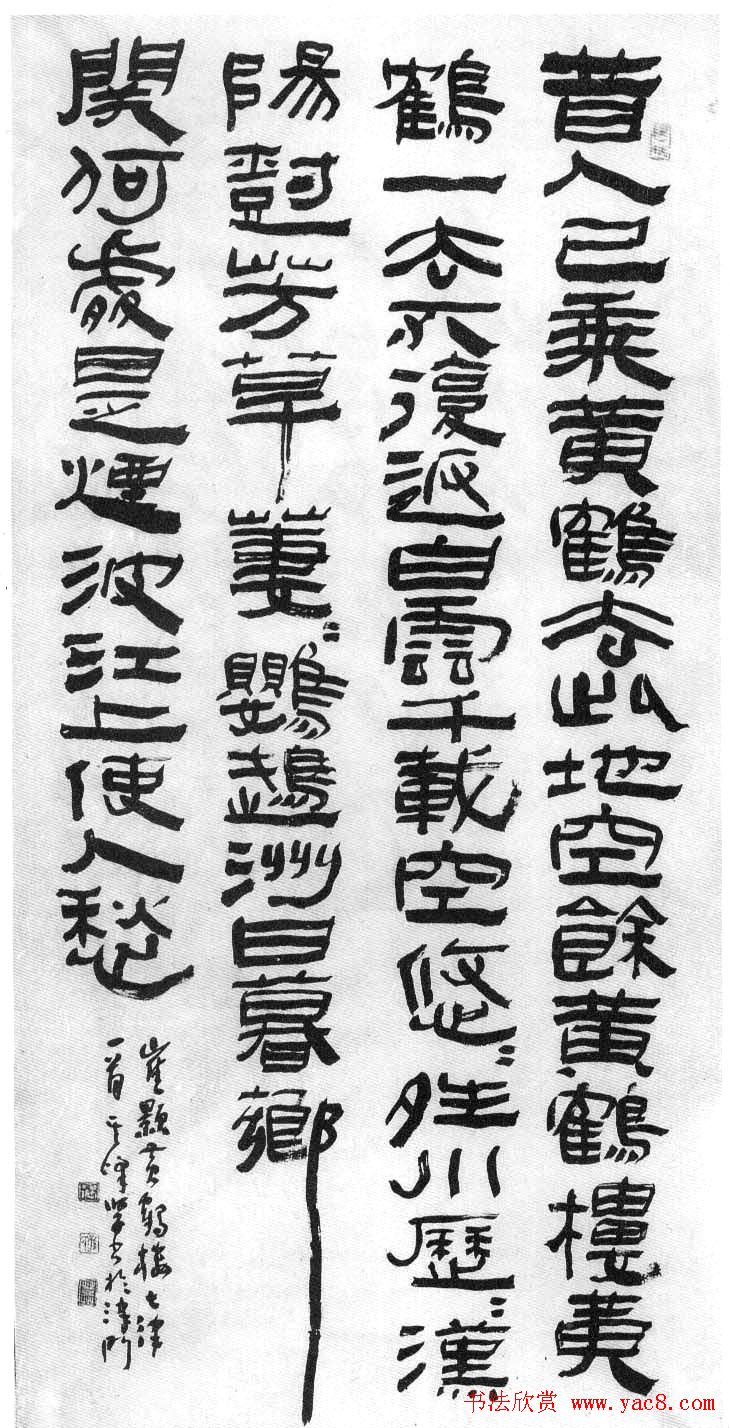 昔人已乘黄鶴去此地空餘黄鶴樓黄
鶴一去不復返白雲千載空悠〻夝川歷〻漢
陽尌芳草萋〻鸚鵡洲日暮鄉
関何處是煙波江上使人愁
崔顥黄鶴樓七律
一首其峰學書於津門
书法欣赏 www.yac8.com